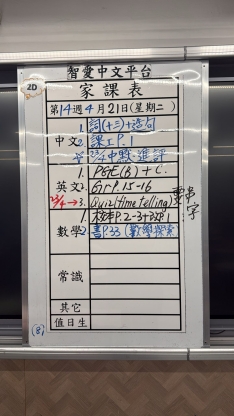 2D
智愛中文平台
家課表
第14週4月21日(星期二)
中文
1. 詞(十三)+造句
2. 課工P.1
☆ 23/4中默、進評
英文
1. PGE(B)+C.
2. Gr P.15-16
23/4→3. Quiz(time telling)
要串字
數學
1. 校本P.2-3+3對P.1
2. 書P.33(數學探索)
常識
其它
值日生
(8)